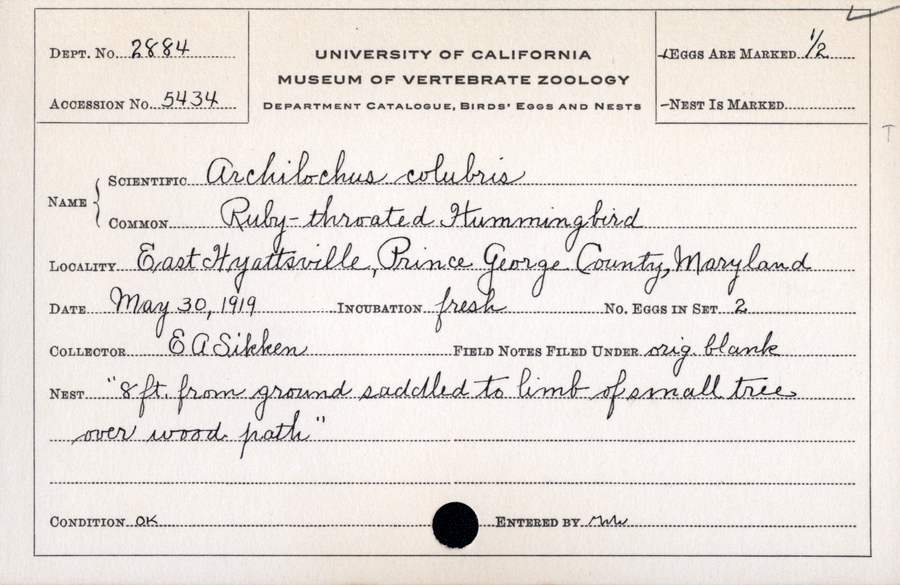 DEPT. No. 2884
ACCESSION No. 5434
UNIVERSITY OF CALIFORNIA
MUSEUM OF VERTEBRATE ZOOLOGY
DEPARTMENT CATALOGUE, BIRDS' EGGS AND NESTS
EGGS ARE MARKED 1/2
NEST IS MARKED
NAME
SCIENTIFIC Archilochus colubris
COMMON Ruby-throated Hummingbird
LOCALITY East Hyattsville, Prince George County, Maryland
DATE May 30, 1919 INCUBATION fresh No. EGGS IN SET 2
COLLECTOR E A Sikken FIELD NOTES FILED UNDER orig. blank
NEST "8 ft. from ground saddled to limb of small tree
over wood path"
CONDITION OK ENTERED BY